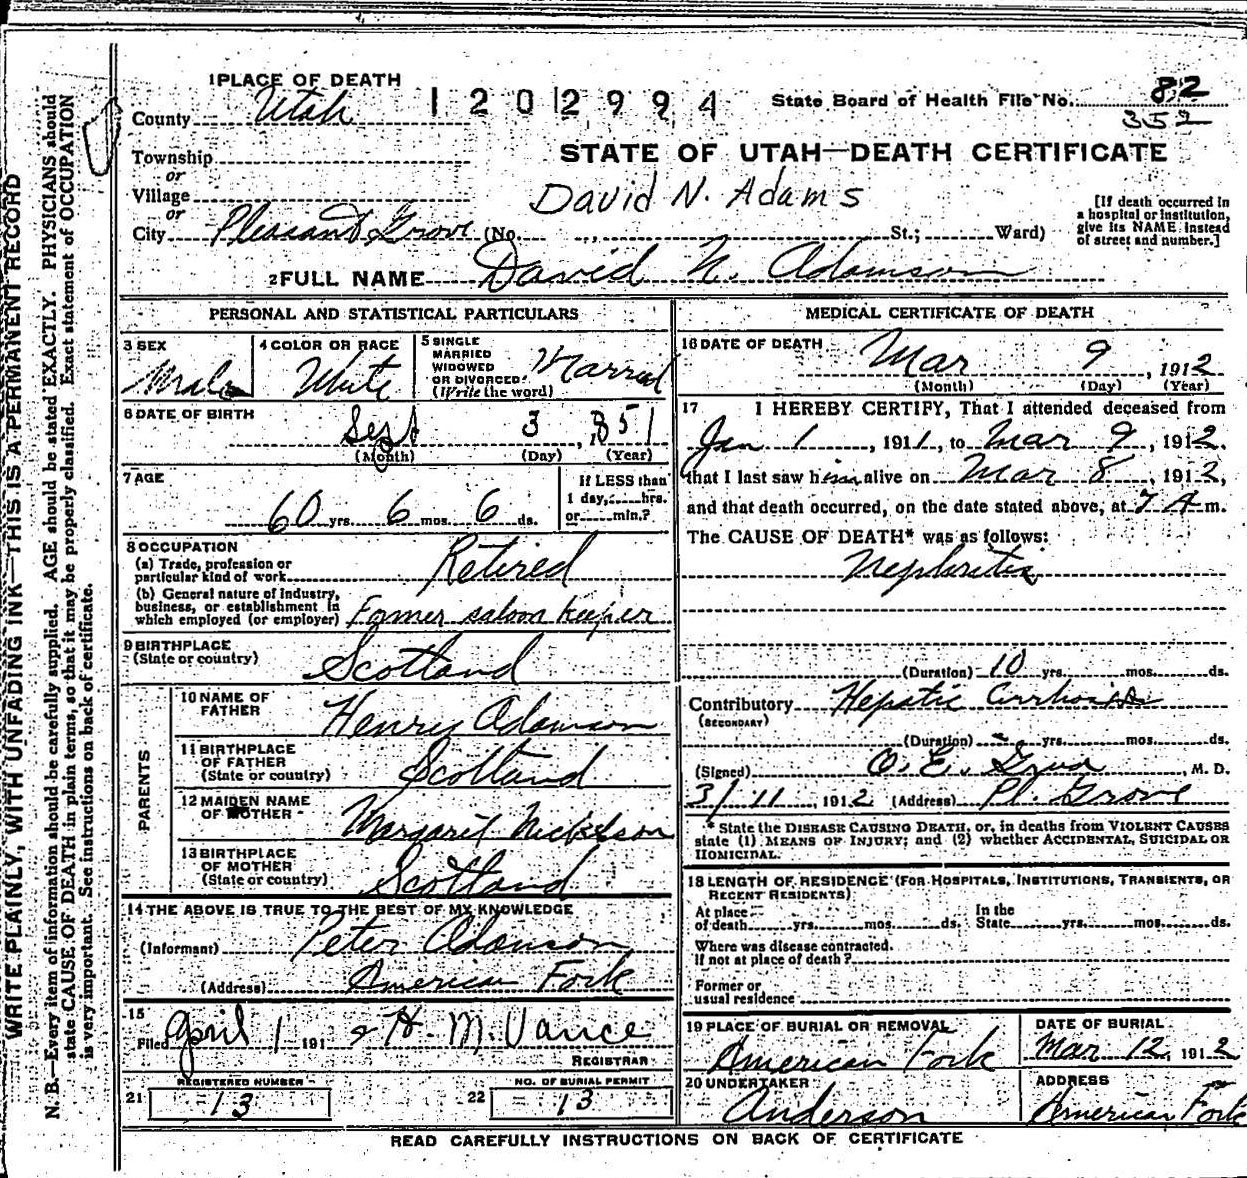 1 PLACE OF DEATH
County Utah
1202994
State Board of Health File No. 82
352
Township
or
Village
or
City Pleasant Grove (No. St.; Ward)
STATE OF UTAH—DEATH CERTIFICATE
David N. Adams
[If death occurred in a hospital or institution, give its NAME instead of street and number.]
2 FULL NAME David N. Adamson
PERSONAL AND STATISTICAL PARTICULARS
3 SEX
Male
4 COLOR OR RACE
White
5 SINGLE
MARRIED
WIDOWED
OR DIVORCED
(Write the word)
Married
6 DATE OF BIRTH
Sept 3, 1851
(Month) (Day) (Year)
7 AGE
60 yrs. 6 mos. 6 ds.
If LESS than
1 day, hrs.
or min.?
8 OCCUPATION
(a) Trade, profession or
particular kind of work Retired
(b) General nature of Industry,
business, or establishment in
which employed (or employer) Former saloon keeper
9 BIRTHPLACE
(State or country) Scotland
PARENTS
10 NAME OF
FATHER Henry Adamson
11 BIRTHPLACE
OF FATHER
(State or country) Scotland
12 MAIDEN NAME
OF MOTHER Margarit Nickelson
13 BIRTHPLACE
OF MOTHER
(State or country) Scotland
14 THE ABOVE IS TRUE TO THE BEST OF MY KNOWLEDGE
(Informant) Peter Adamson
(Address) American Fork
15
Filed April 1 1912 H. M. Vance
REGISTRAR
REGISTERED NUMBER
21 13
NO. OF BURIAL PERMIT
22 13
MEDICAL CERTIFICATE OF DEATH
16 DATE OF DEATH
Mar 9, 1912
(Month) (Day) (Year)
17 I HEREBY CERTIFY, That I attended deceased from
Jan 1, 1911, to Mar 9, 1912.
that I last saw him alive on Mar 8, 1912,
and that death occurred, on the date stated above, at 7 A m.
The CAUSE OF DEATH* was as follows:
Nephritis
(Duration) 10 yrs. mos. ds.
Contributory Hepatic Cirrhosis
(SECONDARY)
(Duration) yrs. mos. ds.
(Signed) O. E. , M. D.
3/11, 1912 (Address) Pl. Grove
* State the DISEASE CAUSING DEATH, or, in deaths from VIOLENT CAUSES
state (1) MEANS OF INJURY; and (2) whether ACCIDENTAL, SUICIDAL OR
HOMICIDAL.
18 LENGTH OF RESIDENCE (FOR HOSPITALS, INSTITUTIONS, TRANSIENTS, OR
RECENT RESIDENTS)
At place
of death yrs. mos. ds.
In the
State yrs. mos. ds.
Where was disease contracted.
If not at place of death?
Former or
usual residence
19 PLACE OF BURIAL OR REMOVAL
American Fork
DATE OF BURIAL
Mar 12, 1912
20 UNDERTAKER
Anderson
ADDRESS
American Fork
READ CAREFULLY INSTRUCTIONS ON BACK OF CERTIFICATE
WRITE PLAINLY, WITH UNFADING INK—THIS IS A PERMANENT RECORD
N. B.—Every item of information should be carefully supplied. AGE should be stated EXACTLY. PHYSICIANS should
state CAUSE OF DEATH in plain terms, so that it may be properly classified. Exact statement of OCCUPATION
is very important. See instructions on back of certificate.